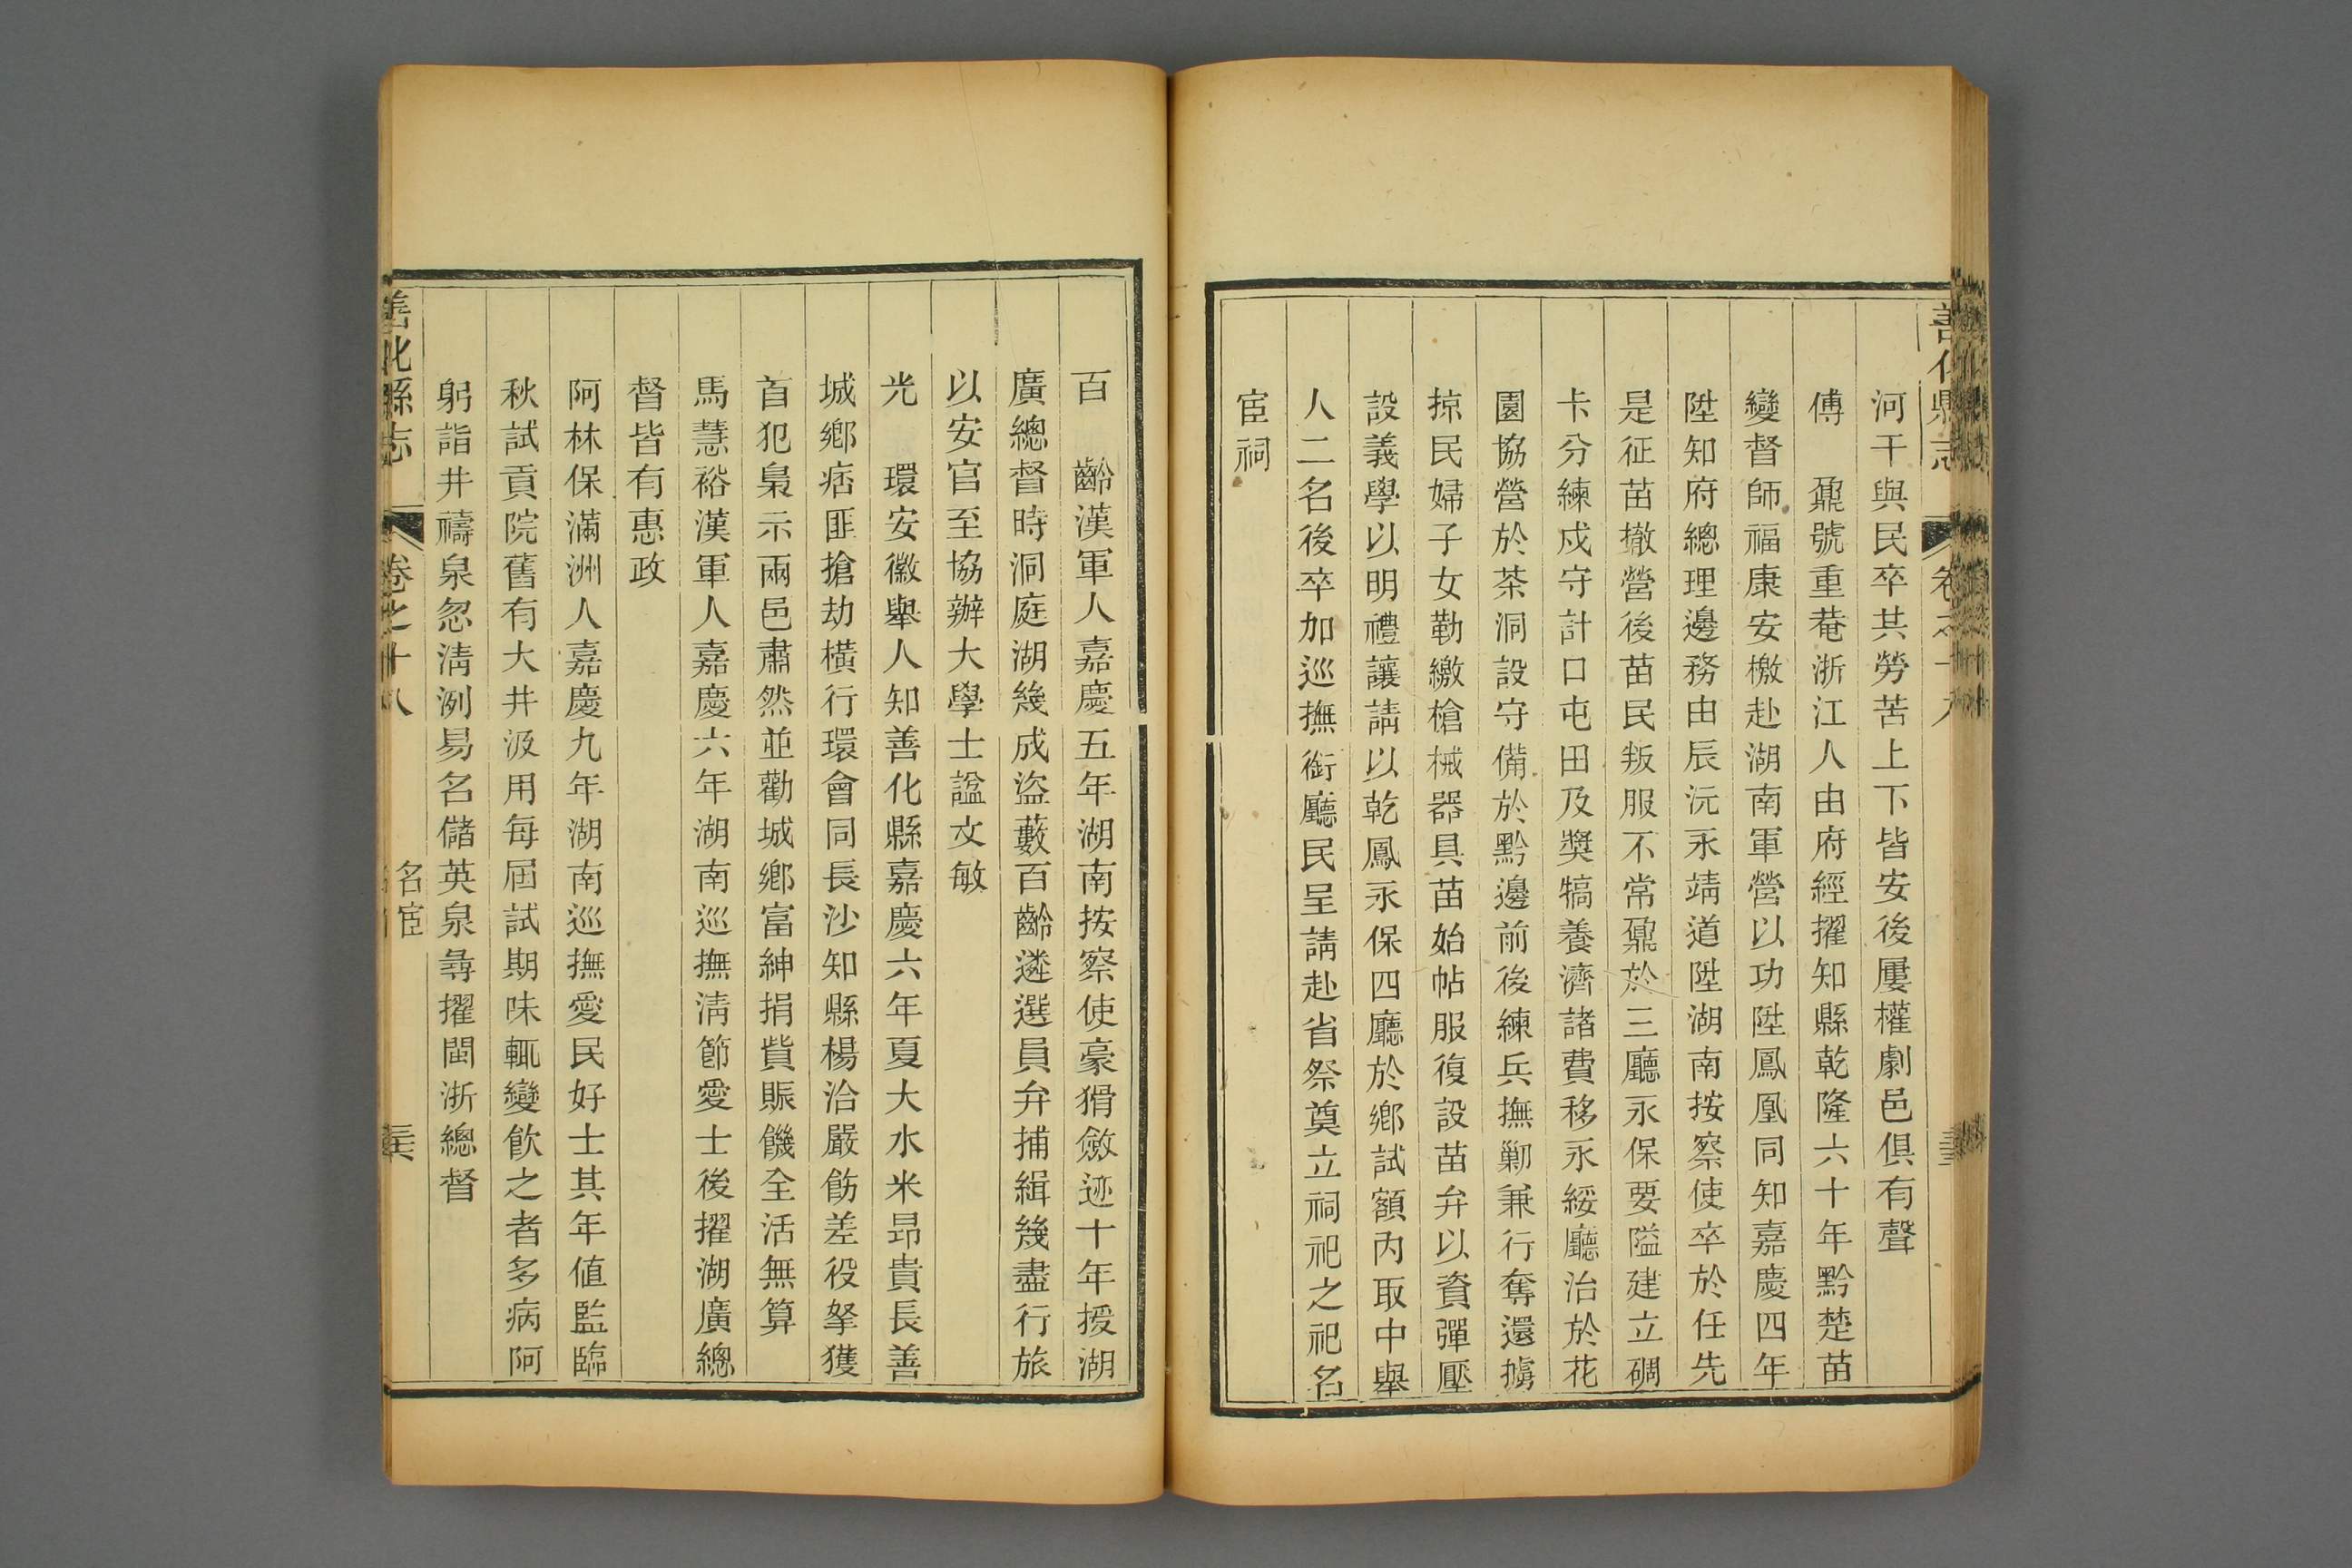 善化縣志 卷之十八
河干與民卒其勞苦上下皆安後屢權劇邑俱有聲
傅 鼐號重菴浙江人由府經擢知縣乾隆六十年黔楚苗
變督師福康安檄赴湖南軍營以功陞鳳凰同知嘉慶四年
陞知府總理邊務由辰沅永靖道陞湖南按察使卒於任先
是征苗撤營後苗民叛服不常鼐於三廳永保要隘建立碉
卡分練戍守計口屯田及獎犒養濟諸費移永綏廳治於花
園協營於茶洞設守備於黔邊前後練兵撫剿兼行奪還擄
掠民婦子女勒繳槍械器具苗始帖服復設苗弁以資彈壓
設義學以明禮讓請以乾鳳永保四廳於鄉試額內取中舉
人二名後卒加巡撫銜廳民呈請赴省祭奠立祠祀之祀名
宦祠
百 齡漢軍人嘉慶五年湖南按察使豪猾斂迹十年授湖
廣總督時洞庭湖幾成盜藪百齡遴選員弁捕緝幾盡行旅
以安官至協辦大學士諡文敏
光 環安徽舉人知善化縣嘉慶六年夏大水米昂貴長善
城鄉痞匪搶劫橫行環會同長沙知縣楊洽嚴飭差役拏獲
首犯梟示兩邑肅然並勸城鄉富紳捐貲賑饑全活無算
馬慧裕漢軍人嘉慶六年湖南巡撫清節愛士後擢湖廣總
督皆有惠政
阿林保滿洲人嘉慶九年湖南巡撫愛民好士其年值監臨
秋試貢院舊有大井汲用每屆試期味輒變飲之者多病阿
躬詣井禱泉忽清洌易名儲英泉尋擢閩浙總督
善化縣志 卷之十八 名宦